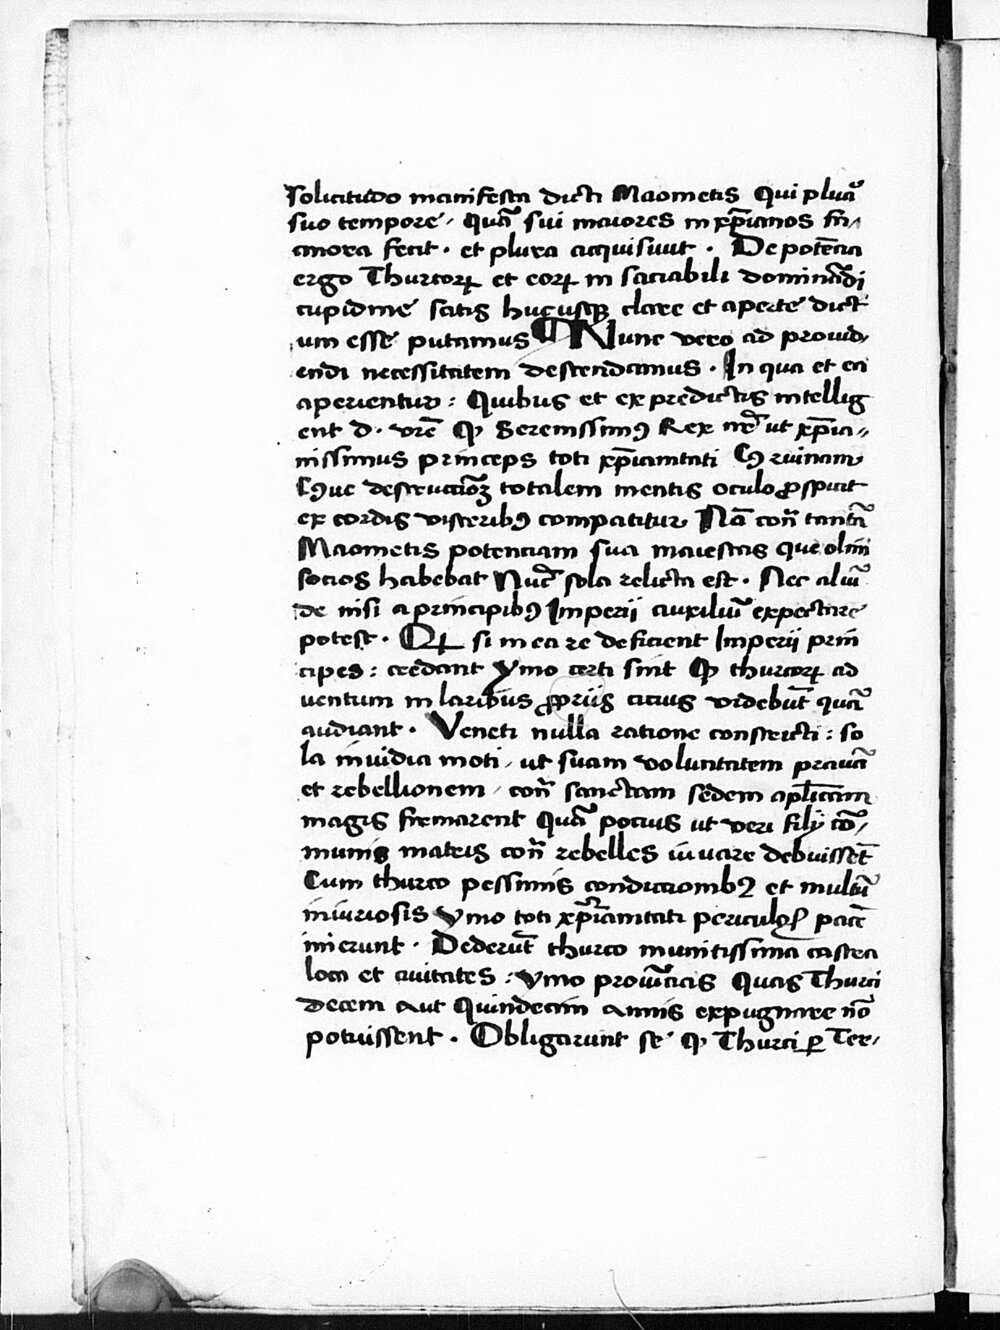 solicitudo manifesta dicti Maometis Qui pluã
suo tempore, Quã sui maiores in xp̃ianos fa,
cinora fecit . et plura acquisiuit . De potẽcia
ergo Thurcoꝝ et eoꝝ in saciabili dominãdi
cupidine satis hucusqꝫ clare et aperte dict
um esse putamus ¶ Nunc vero ad prouid,
endi necessitatem descendamus . In qua et ea
aperientur : Quibus et ex predictis intellig
ent d . vrẽ Qꝫ Serenissimꝰ Rex nr̃ ut xp̃ia-
nissimus princeps toti xp̃ianitati Cꝰ ruinam
Cꝰue destructioꝫ totalem mentis oculo ꝓspicit
ex cordis visceribꝰ compatitur Nã con̄ tantã
Maometis potenciam sua maiestas que olim
socios habebat Nuc̃ sola relicta est . Nec aliũ
de nisi a principibꝰ Imperij auxiliũ expectare
potest . Qꝫ si in ea re deficient Imperij prin
cipes : credant ymo certi sint Qꝫ thurcoꝝ ad
uentum in laribus ꝓprijs citius videbũt quã
audiant . Veneti nulla ratione constricti : so
la inuidia moti, ut suam voluntatem prauã
et rebellionem, con̄ sanctam sedem ap̃licam
magis firmarent Quã pocius ut veri filij cõ,
munis matris con̄ rebelles iuuare debuissẽt
Cum thurco pessimis condicionibꝰ et multũ
iniuriosis ymo toti xp̃ianitati periculos̃ pacẽ
inierunt . Dederũt thurco munitissima castra
loca et ciuitates : ymo prouĩcias Quas Thurci
decem aut Quindecim annis expugnare nõ
potuissent . Obligarunt se Qꝫ Thurci ꝑ Ter,